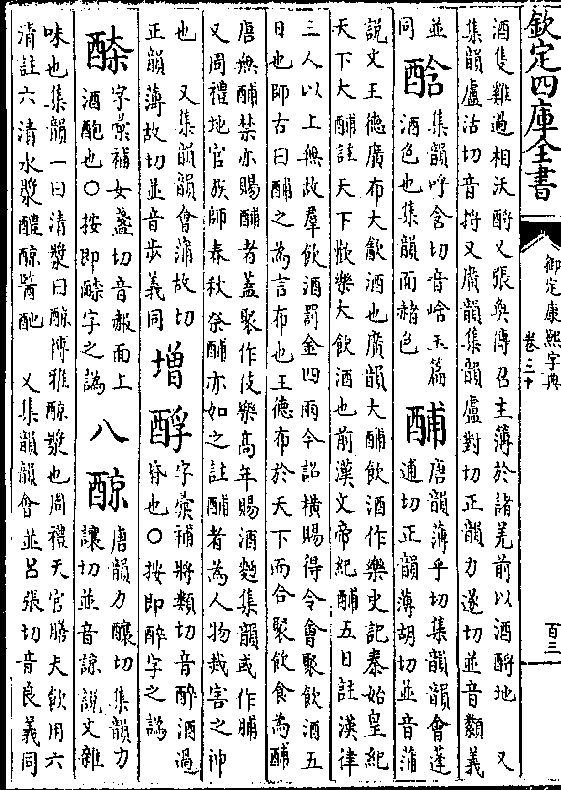 欽定四庫全書
御定康熙字典
卷三十
百三
酒隻雞過相沃酹又張奐傳召主簿於諸羌前以酒酹地　又
集韻盧活切音捋又廣韻集韻盧對切正韻力遂切並音類義
同
並
酓
集韻呼含切音㟏玉篇
酒色也集韻面赭色
酺
唐韻薄乎切集韻韻會蓬
逋切正韻薄胡切並音蒲
說文王德廣布大飲酒也廣韻大酺飲酒作樂史記秦始皇紀
天下大酺註天下歡樂大飲酒也前漢文帝紀酺五日註漢律
三人以上無故羣飲酒罰金四兩今詔橫賜得令會聚飲酒五
日也師古曰酺之為言布也王德布於天下而合聚飲食為酺
唐無酺禁亦賜酺者蓋聚作伎樂高年賜酒麪集韻或作脯
又周禮地官族師春秋祭酺亦如之註酺者為人物烖害之神
也　又集韻韻會蒲故切
正韻薄故切並音步義同
增
酻
字彙補將類切音醉酒過
度也○按即醉字之譌
字彙補女盞切音赧面上
酒䣳也○按即醶字之譌
八
醇
唐韻力釀切集韻力
讓切並音諒說文雜
味也集韻一曰清漿曰醇博雅醇漿也周禮天官膳夫飲用六
清註六清水漿醴醇醫酏　又集韻韻會並呂張切音良義同